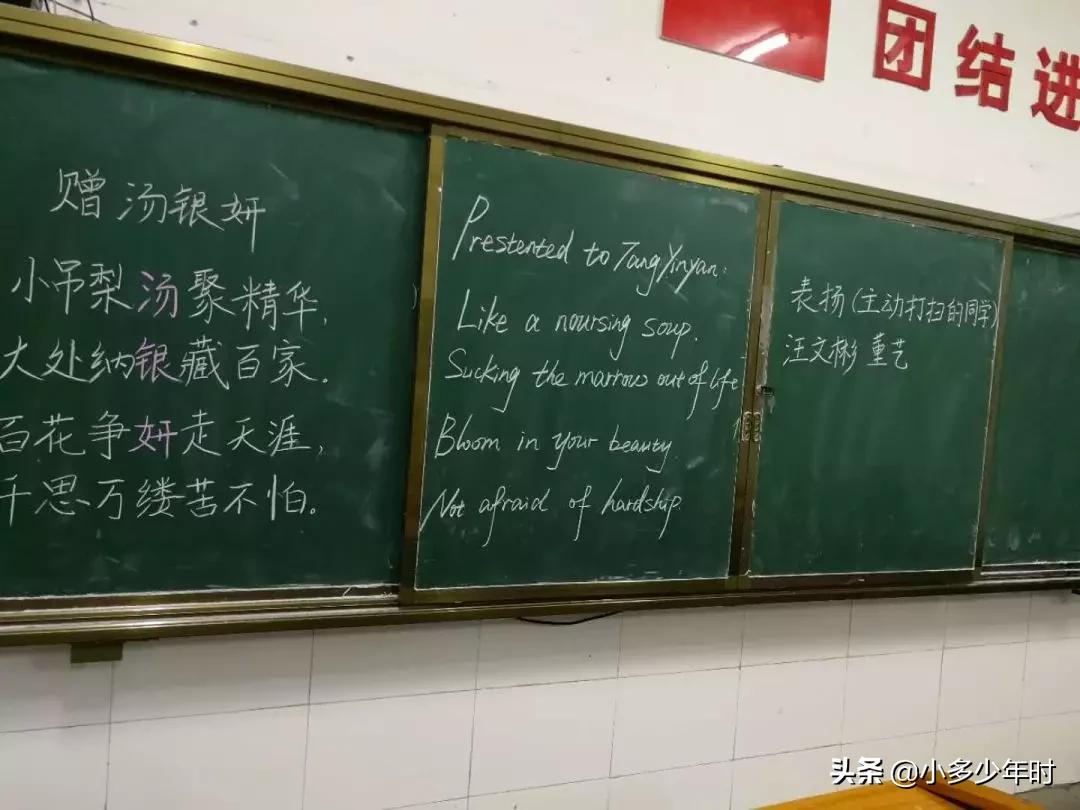 团结进
赠汤银妍
小吊梨汤聚精华,
大处纳银藏百家.
百花争妍走天涯,
千思万缕苦不怕。
Prestented to Tang Yinyan:
Like a noursing soup.
Sucking the marrows out of life
Bloom in your beauty.
Not afraid of hardship.
表扬(主动打扫的同学)
汪文彬 董艺
头条 @小多少年时